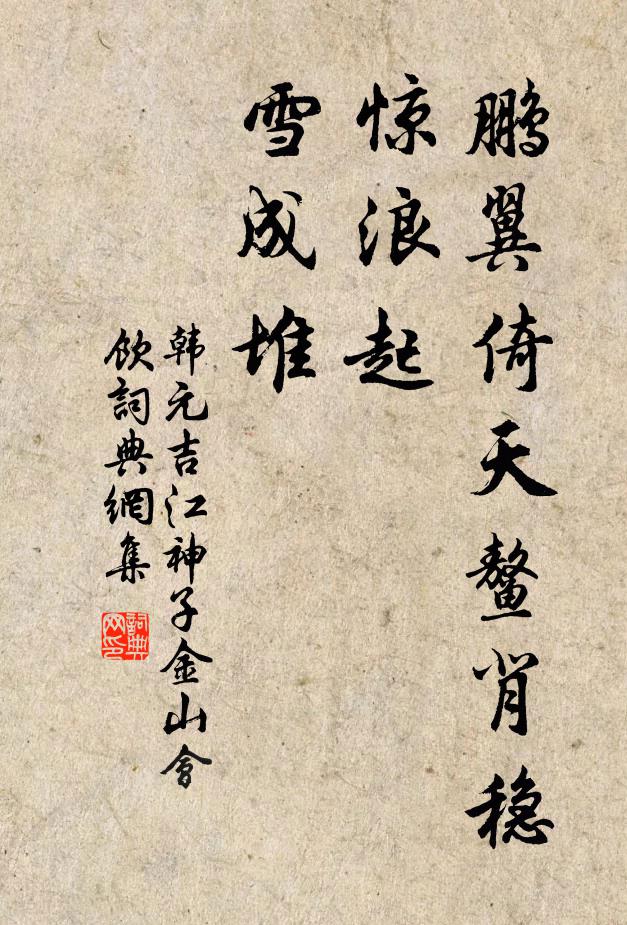 鹏翼倚天鳌背稳
惊浪起
雪成堆
韩元吉江神子金山會
飲詞典網集
詞典
网印